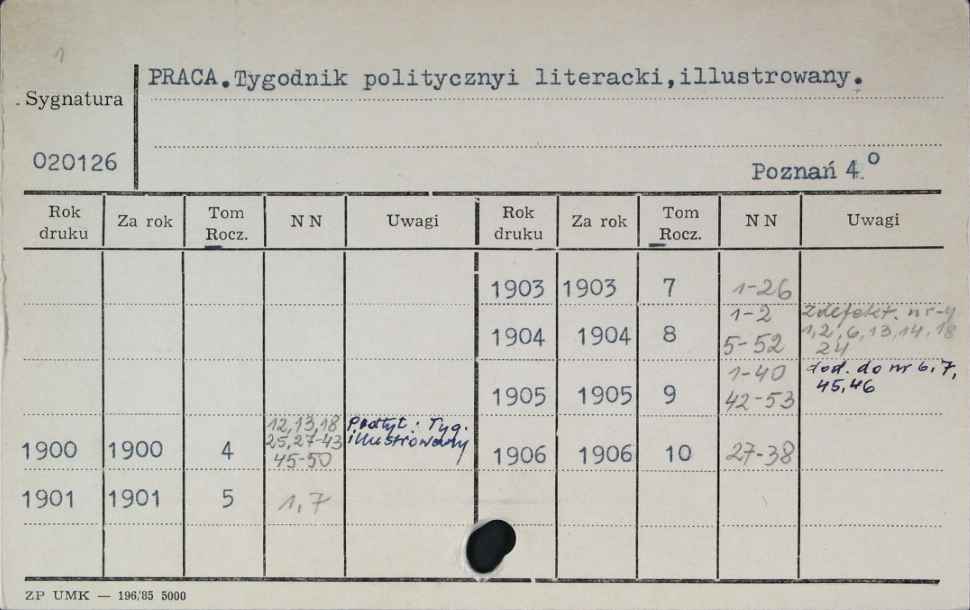 1
PRACA.Tygodnik politycznyi literacki,illustrowany.
Sygnatura
020126
Poznań 4.°
Rok druku Za rok Tom Rocz. NN Uwagi Rok druku Za rok Tom Rocz. NN Uwagi
1903 1903 7 1-26
1904 1904 8 1-2
5-52 zdefekt. nr-y
1,2,6,13,14,18
24
1905 1905 9 1-40
42-53 dod. do nr 6,7,
45,46
1900 1900 4 12,13,18
25,27-43
45-50 Podtyt: Tyg.
illustrowany
1906 1906 10 27-38
1901 1901 5 1,7
ZP UMK — 196/85 5000